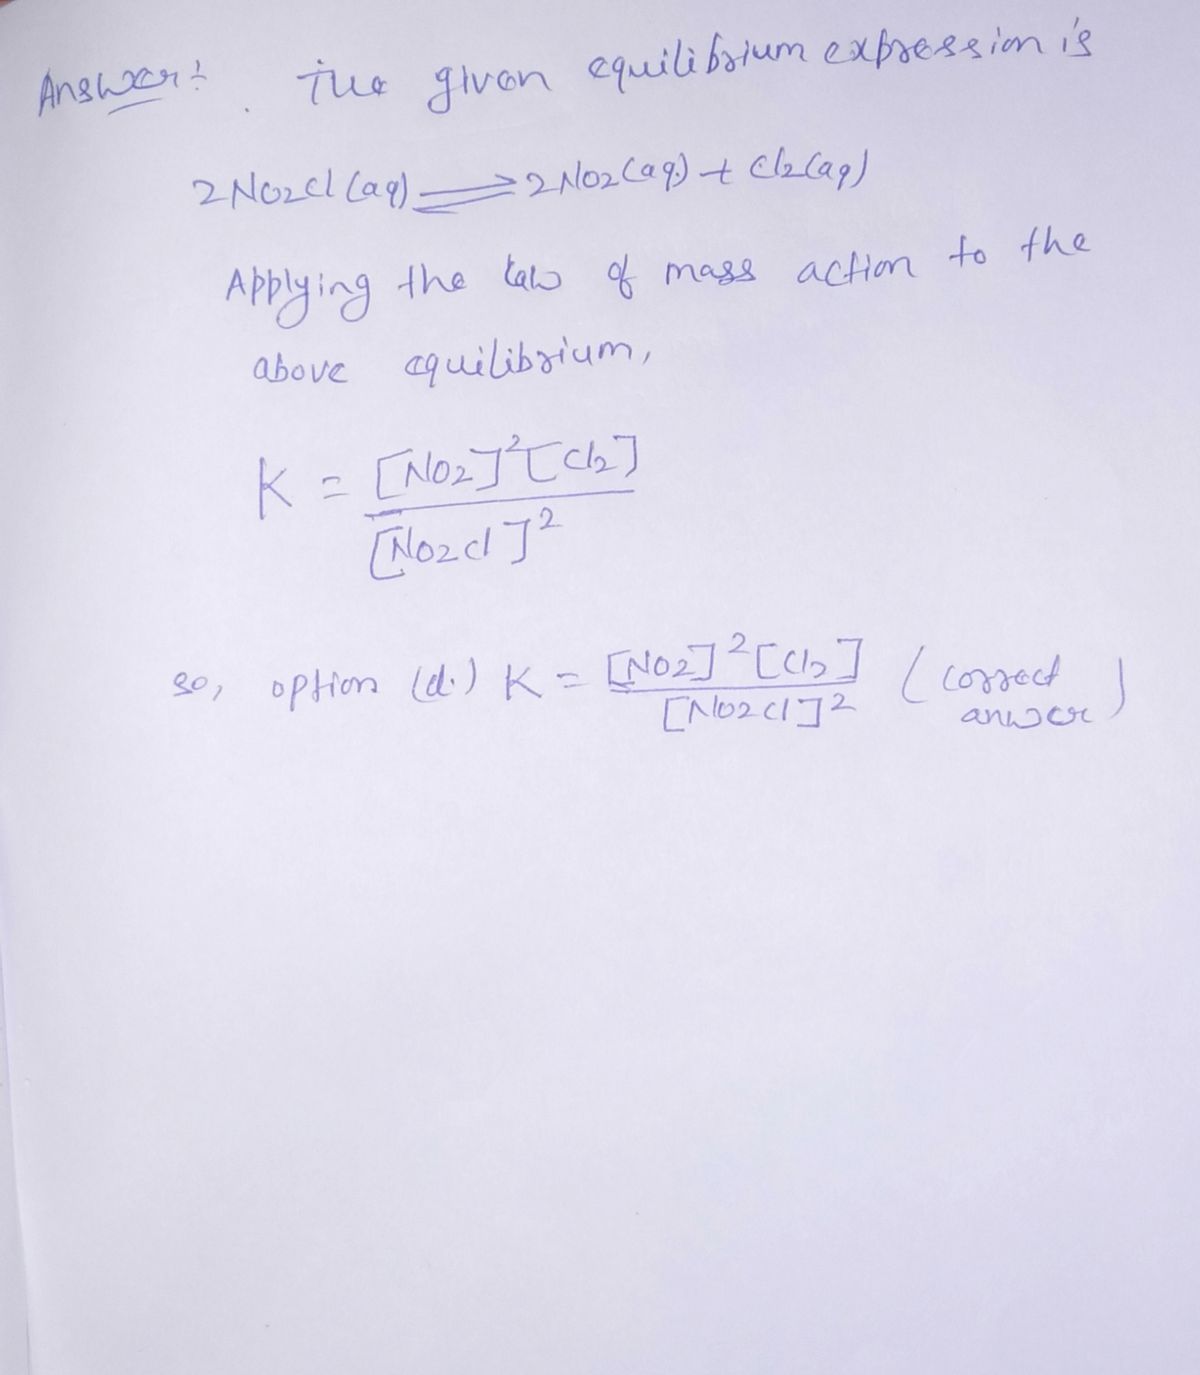 Answer:- The given equilibrium expression is
2NO2Cl (aq) ⇌ 2NO2(aq) + Cl2(aq)
Applying the law of mass action to the
above equilibrium,
K = [NO2]²[Cl2]
[NO2Cl]²
so, option (d.) K = [NO2]²[Cl2] (correct
[NO2Cl]² anwer)